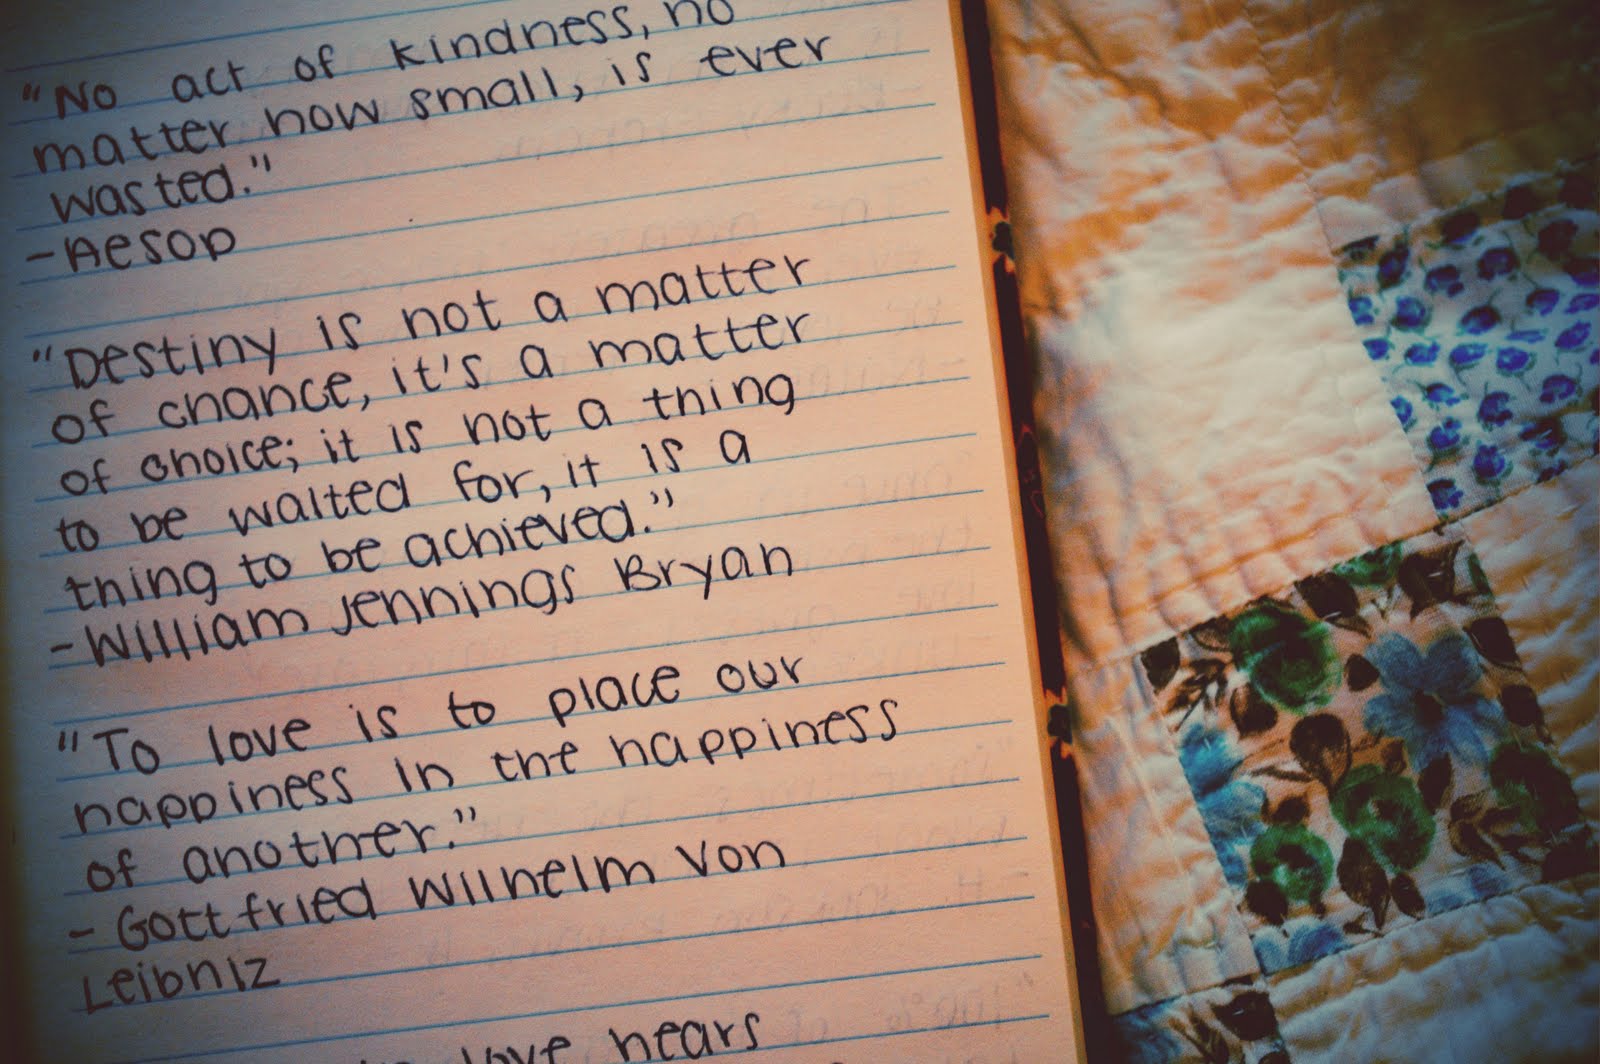 "No act of kindness, no
matter how small, is ever
wasted."
-Aesop
"Destiny is not a matter
of chance, it's a matter
of choice; it is not a thing
to be waited for, it is a
thing to be achieved."
-William Jennings Bryan
"To love is to place our
happiness in the happiness
of another."
- Gottfried Wilhelm Von
Leibniz
love hears